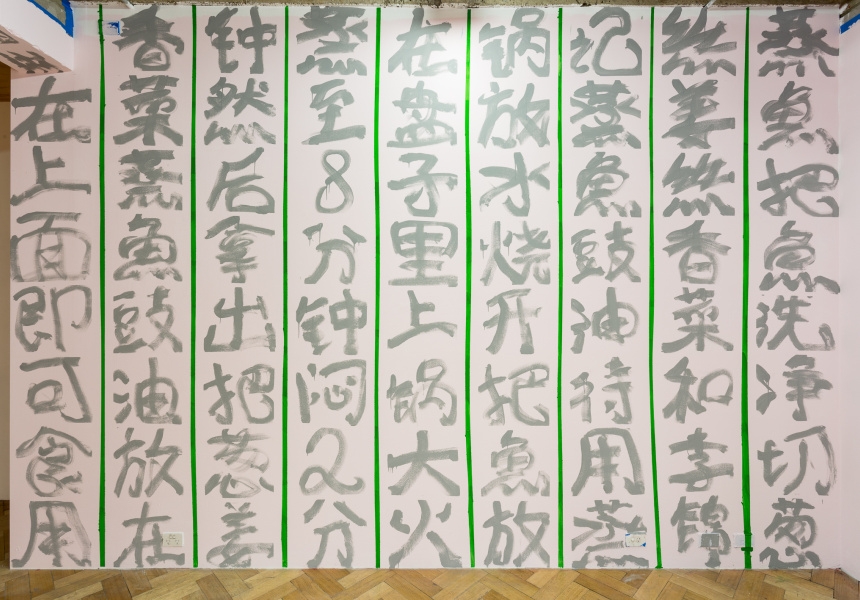 蒸魚把魚洗净切葱
丝姜丝香菜和李锦
记蒸魚豉油待用蒸
锅放水烧开把魚放
在盘子里上锅大火
蒸至8分钟闷2分
钟然后拿出把葱姜
香菜蒸魚豉油放在
在上面即可食用